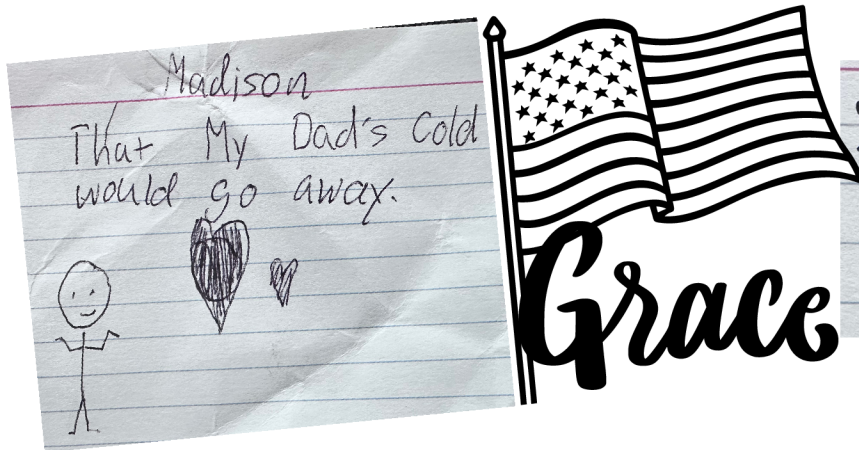 Madison
That My Dad's Cold
would go away.
Grace